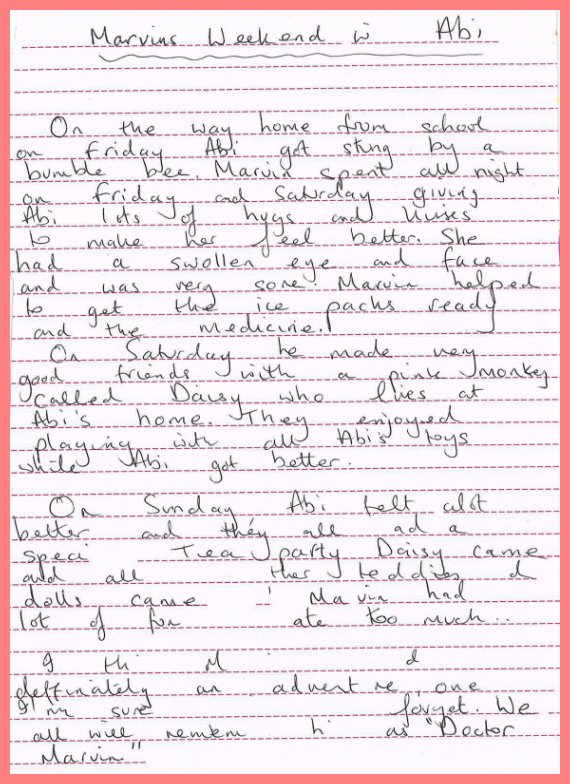 Marvins Weekend w Abi
On the way home from school
on friday Abi got stung by a
bumble bee. Marvin spent all night
on friday and Saturday giving
Abi lots of hugs and kisses
to make her feel better. She
had a swollen eye and face
and was very sore. Marvin helped
to get the ice packs ready
and the medicine.
On Saturday he made very
good friends with a pink monkey
called Daisy who lives at
Abi's home. They enjoyed
playing with all Abi's toys
while Abi got better.
On Sunday Abi felt alot
better and they all ad a
speci Tea party Daisy came
and all ther teddies d
dolls came Ma vin had
lot of fun ate too much..
I thi M d
deffinately an advent re one
I'm sure forget. We
all will remem hi as "Doctor
Marvin"